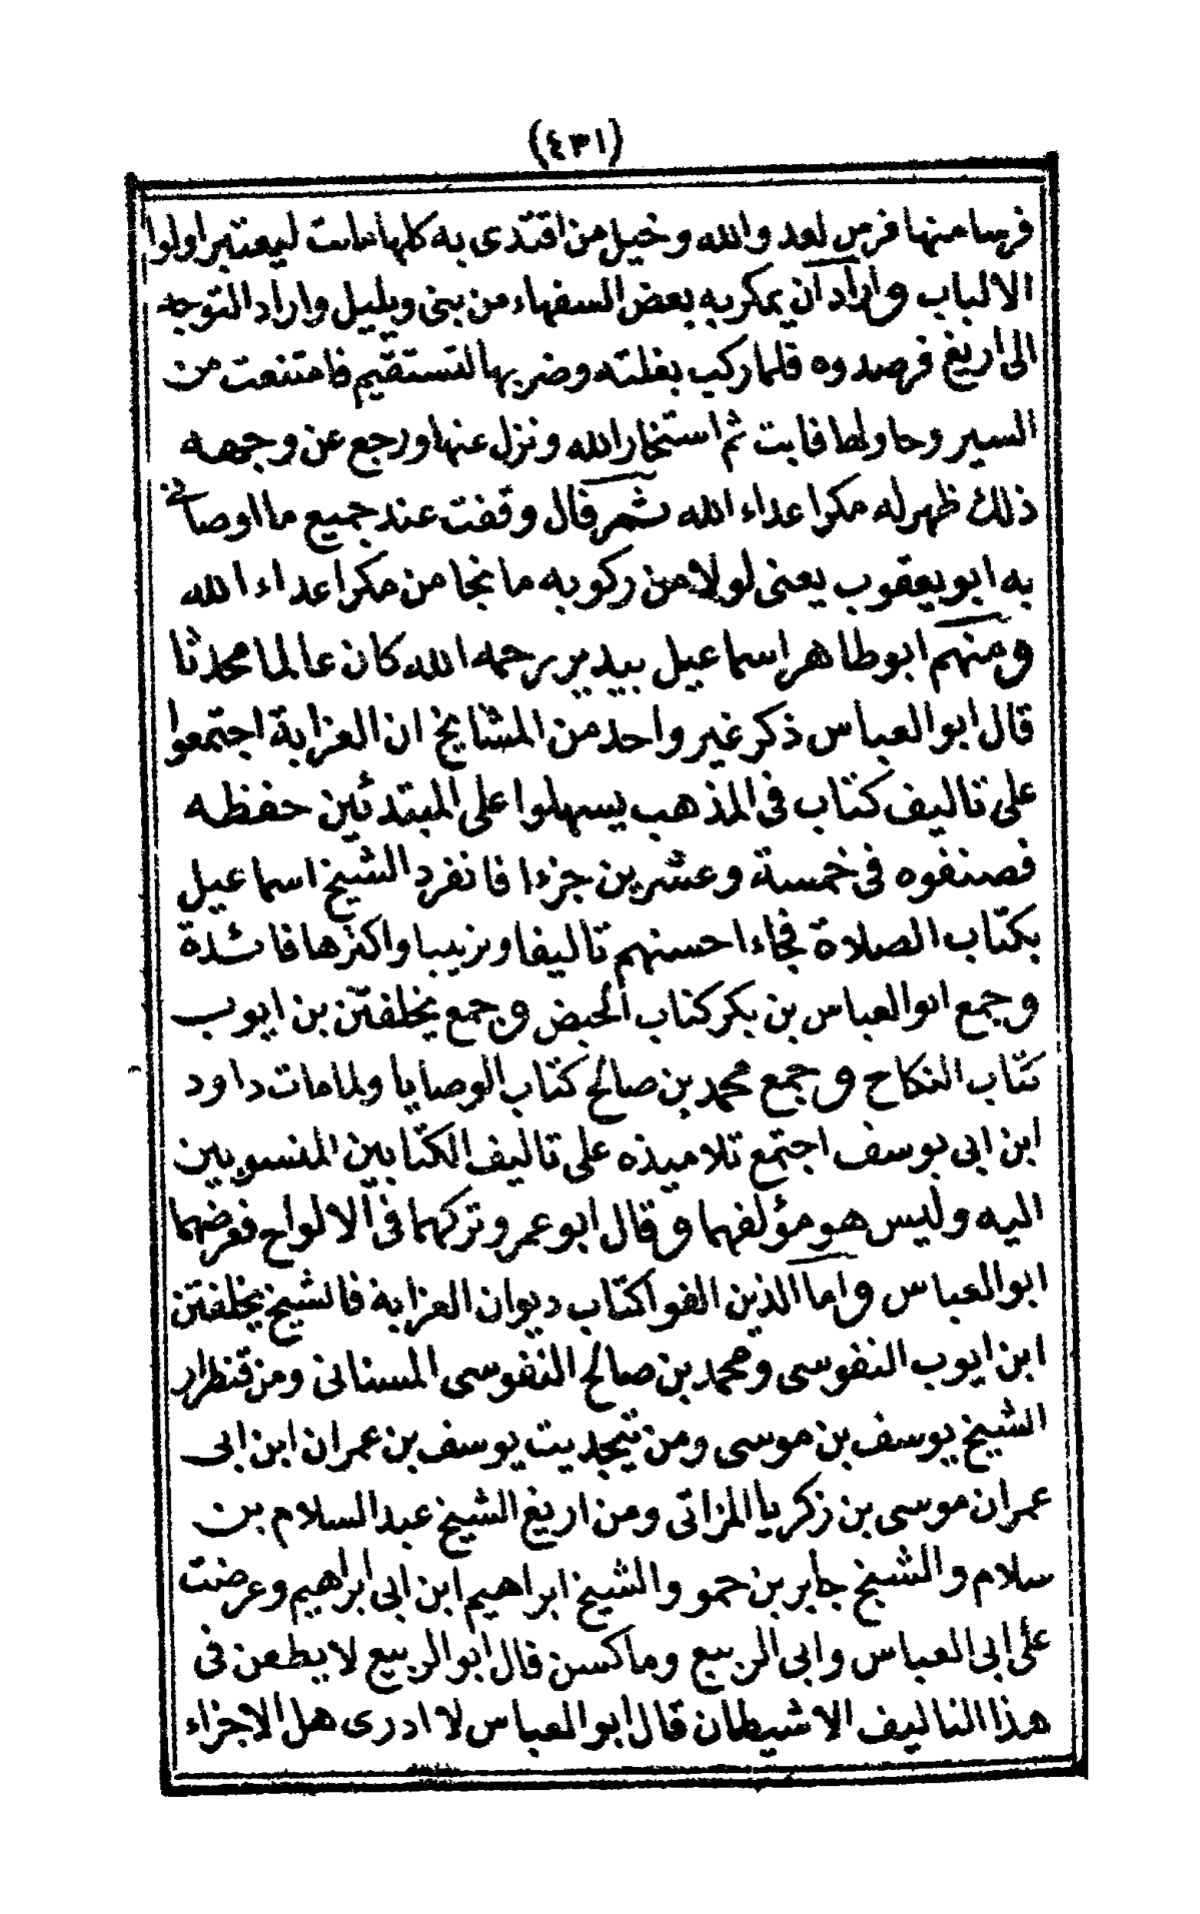 (٤٣١)
فرسا منها فرس لعد والله وخيل من اقتدى به كلها ماتت ليعتبر اولوا
الالباب واراد ان يمكر به بعض السفهاء من بنى ويليل واراد التوجه
الى اريغ فرصدوه فلما ركب بغلته وضربها لتستقيم فامتنعت من
السير وحاولها فابت ثم استخار الله ونزل عنها ورجع عن وجهه
ذلك ظهر له مكر اعداء الله ثم قال وقفت عند جميع ما اوصانى
به ابو يعقوب يعنى لولا من ركوبه ما نجا من مكر اعداء الله
ومنهم ابو طاهر اسماعيل بيدير رحمه الله كان عالما محدثا
قال ابو العباس ذكر غير واحد من المشايخ ان العزابة اجتمعوا
على تاليف كتاب فى المذهب يسهلوا على المبتدئين حفظه
فصنفوه فى خمسة وعشرين جزءا فانفرد الشيخ اسماعيل
بكتاب الصلاة فجاء احسنهم تاليفا وترتيبا واكثرها فائدة
وجمع ابو العباس بن بكر كتاب الحيض وجمع يخلفتن بن ايوب
كتاب النكاح وجمع محمد بن صالح كتاب الوصايا ولما مات داود
ابن ابى يوسف اجتمع تلاميذه على تاليف الكتابين المنسوبين
اليه وليس هو مؤلفهما وقال ابو عمرو تركهما فى الالواح فعرضهما
ابو العباس واما الذين الفوا كتاب ديوان العزابه فالشيخ يخلفتن
ابن ايوب النفوسى ومحمد بن صالح النفوسى المسنانى ومن قنطرار
الشيخ يوسف بن موسى ومن تيجديت يوسف بن عمران ابن ابى
عمران موسى بن زكريا المزاتى ومن اريغ الشيخ عبد السلام بن
سلام والشيخ جابر بن حمو والشيخ ابراهيم ابن ابى ابراهيم وعرضت
على ابى العباس وابى الربيع وماكسن قال ابو الربيع لا يطعن فى
هذا التاليف الا شيطان قال ابو العباس لا ادرى هل الاجزاء